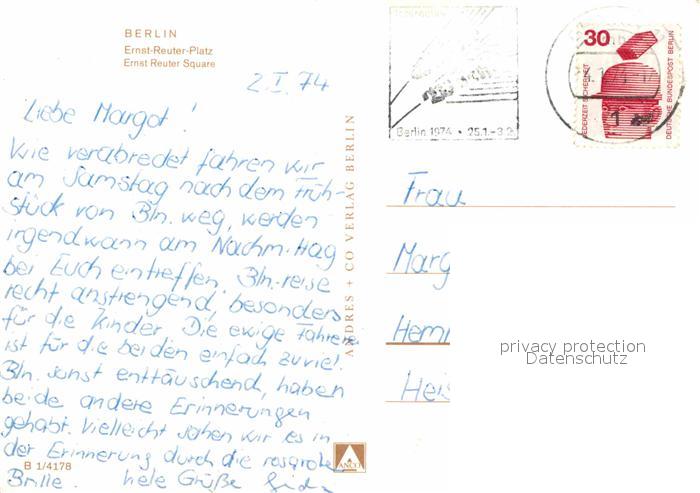 BERLIN
Ernst-Reuter-Platz
Ernst Reuter Square
2.I.74
Liebe Margot!
Wie verabredet fahren wir
am Samstag nach dem Früh-
stück von Bln. weg, werden
irgendwann am Nachm.ttag
bei Euch eintreffen. Bln-reise
recht anstrengend, besonders
für die Kinder. Die ewige Fahrerei
ist für die beiden einfach zuviel.
Bln. sonst enttäuschend, haben
beide andere Erinnerungen
gehabt. Vielleicht sahen wir es in
der Erinnerung durch die rosarote
Brille. Viele Grüße
B 1/4178
ANDRES + CO VERLAG BERLIN
ANCO
Berlin 1974 • 25.1.-3.2.
30
JEDERZEIT SICHERHEIT
DEUTSCHE BUNDESPOST BERLIN
1
Frau
Marg
Hem
Heis
privacy protection
Datenschutz